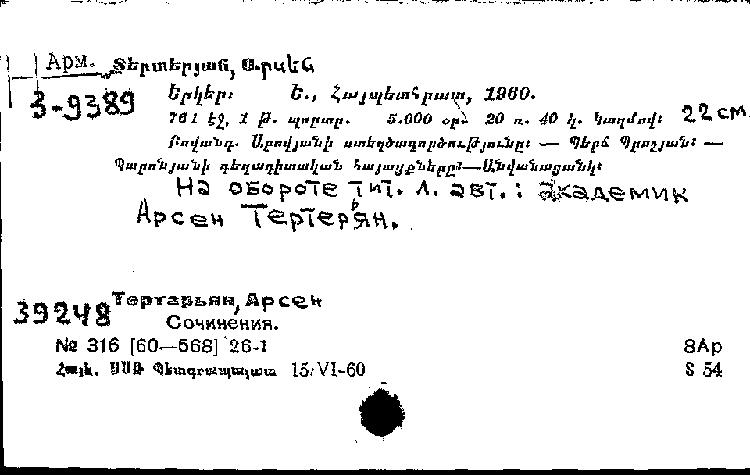 Арм. Տերտերյան, Արսեն
3-9389 Երկեր: Ե., Հայպետհրատ, 1960.
761 էջ, 1 թ. պորտր. 5.000 օր. 20 ռ. 40 կ. կազմով: 22 см.
Բովանդ. Աբովյանի ստեղծագործությունը: — Պերճ Պռոշյան: —
Պարոնյանի գեղագիտական հայացքները:—Անվանացանկ:
На обороте тит. л. авт.: академик
Арсен Тертерьян.
39248 Тертарьян, Арсен
Сочинения.
№ 316 [60—568] 26-1 8Ар
Հայկ. ՍՍՌ Պետգրապալատ 15/VI-60 Տ 54